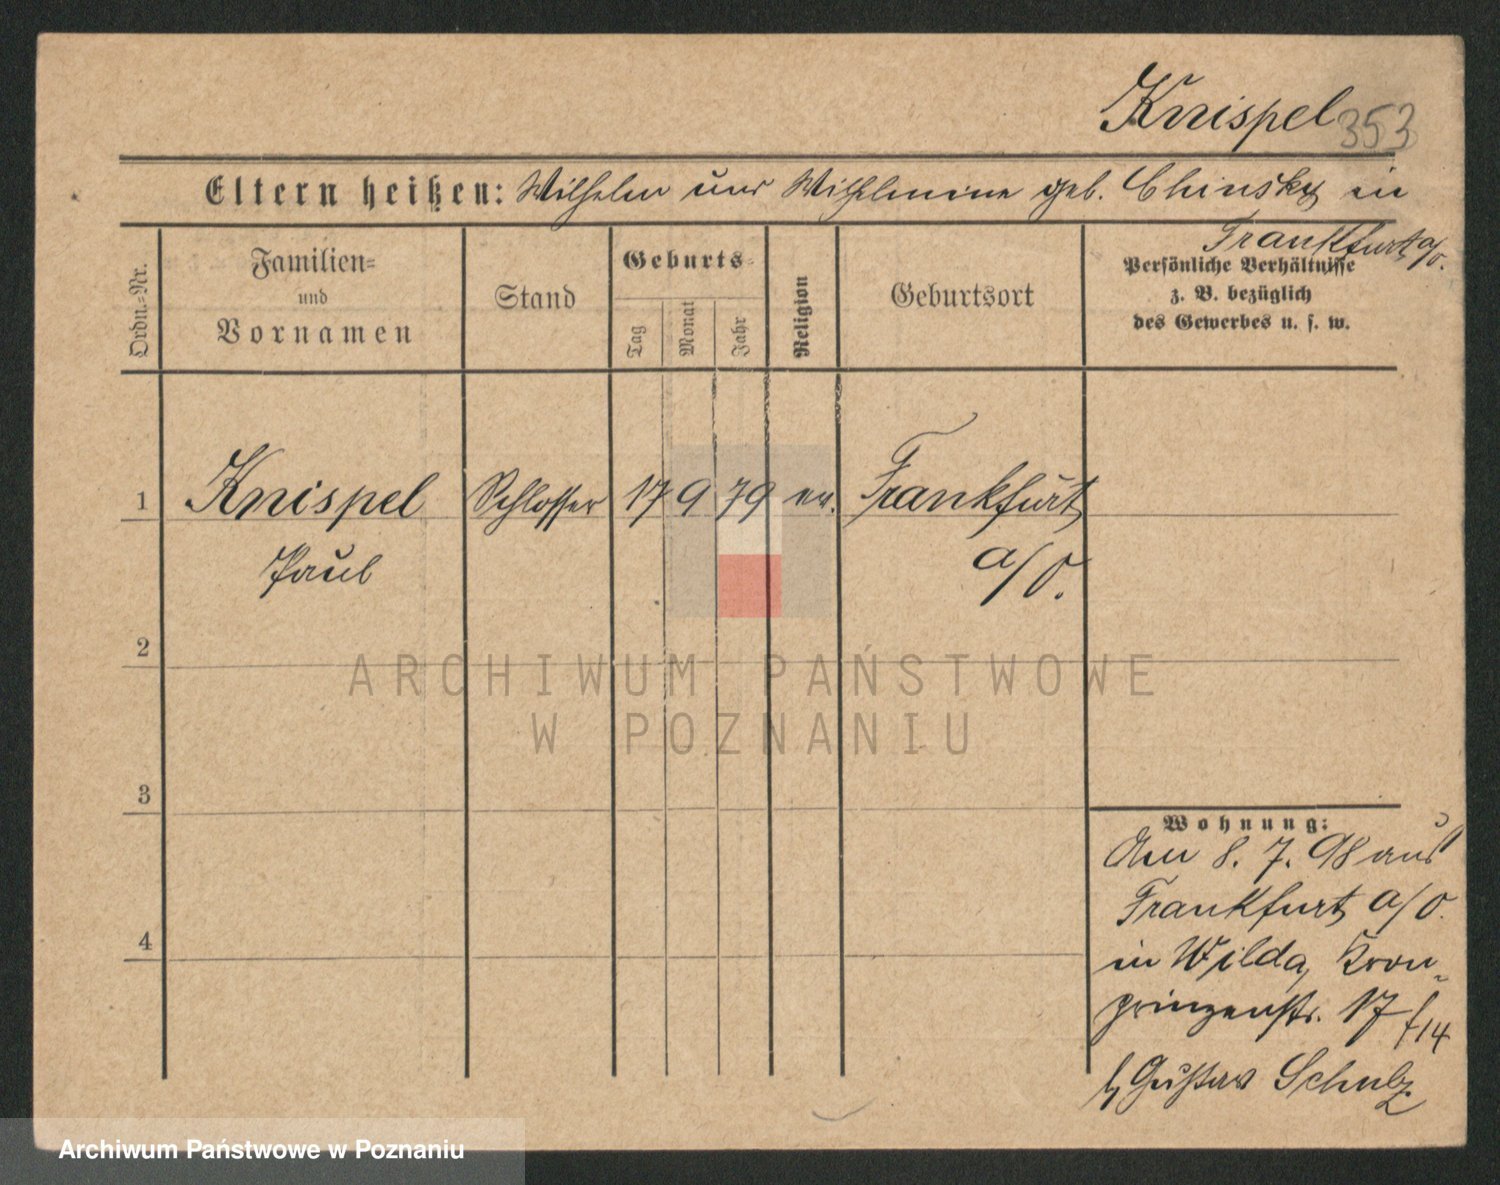 Knispel 353
Eltern heißen: Wilhelm und Wilhelmine geb. Chinsky in
Frankfurt a/O.
Ordn.=Nr.
Familien=
und
Vornamen
Stand
Geburts=
Tag
Monat
Jahr
Religion
Geburtsort
Persönliche Verhältnisse
z. B. bezüglich
des Gewerbes u. s. w.
1 Knispel Schlosser 17 9 79 ev. Frankfurt
Paul a/O.
2
3
4
Wohnung:
Den 8. 7. 98 aus
Frankfurt a/O.
in Wilda, Kron-
prinzenstr. 17
b/ Gustav Schulz
ARCHIWUM PAŃSTWOWE
W POZNANIU
Archiwum Państwowe w Poznaniu